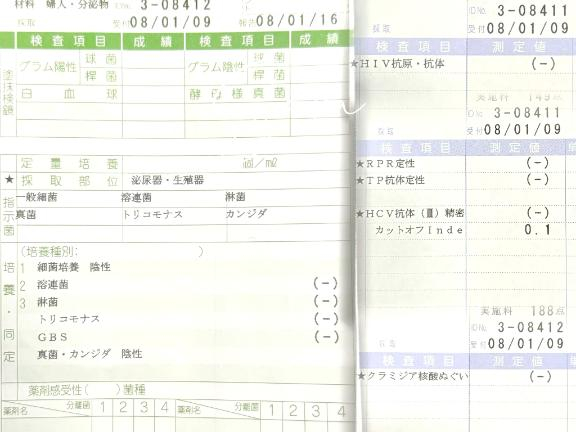 材料 婦人・分泌物 IDNo. 3-08412
受付 08/01/09 報告 08/01/16
検査項目 成績 検査項目 成績
塗抹検鏡
グラム陽性 球菌 グラム陰性 球菌
桿菌 桿菌
白血球 酵母様真菌
定量培養 /mℓ
★ 採取部位 泌尿器・生殖器
指示菌
一般細菌 溶連菌 淋菌
真菌 トリコモナス カンジダ
(培養種別: )
培養・同定
1 細菌培養 陰性
2 溶連菌 (-)
3 淋菌 (-)
トリコモナス (-)
GBS (-)
真菌・カンジダ 陰性
薬剤感受性( )菌種
薬剤名 分離菌 1 2 3 4 薬剤名 分離菌 1 2 3 4
IDNo. 3-08411
採取 受付 08/01/09
検査項目 測定値
★HIV抗原・抗体 (-)
実施料 149点
IDNo. 3-08411
採取 受付 08/01/09
検査項目 測定値 単
★RPR定性 (-)
★TP抗体定性 (-)
★HCV抗体(Ⅲ)精密 (-)
カットオフInde 0.1
実施料 188点
IDNo. 3-08412
採取 受付 08/01/09
検査項目 測定値 単
★クラミジア核酸ぬぐい (-)